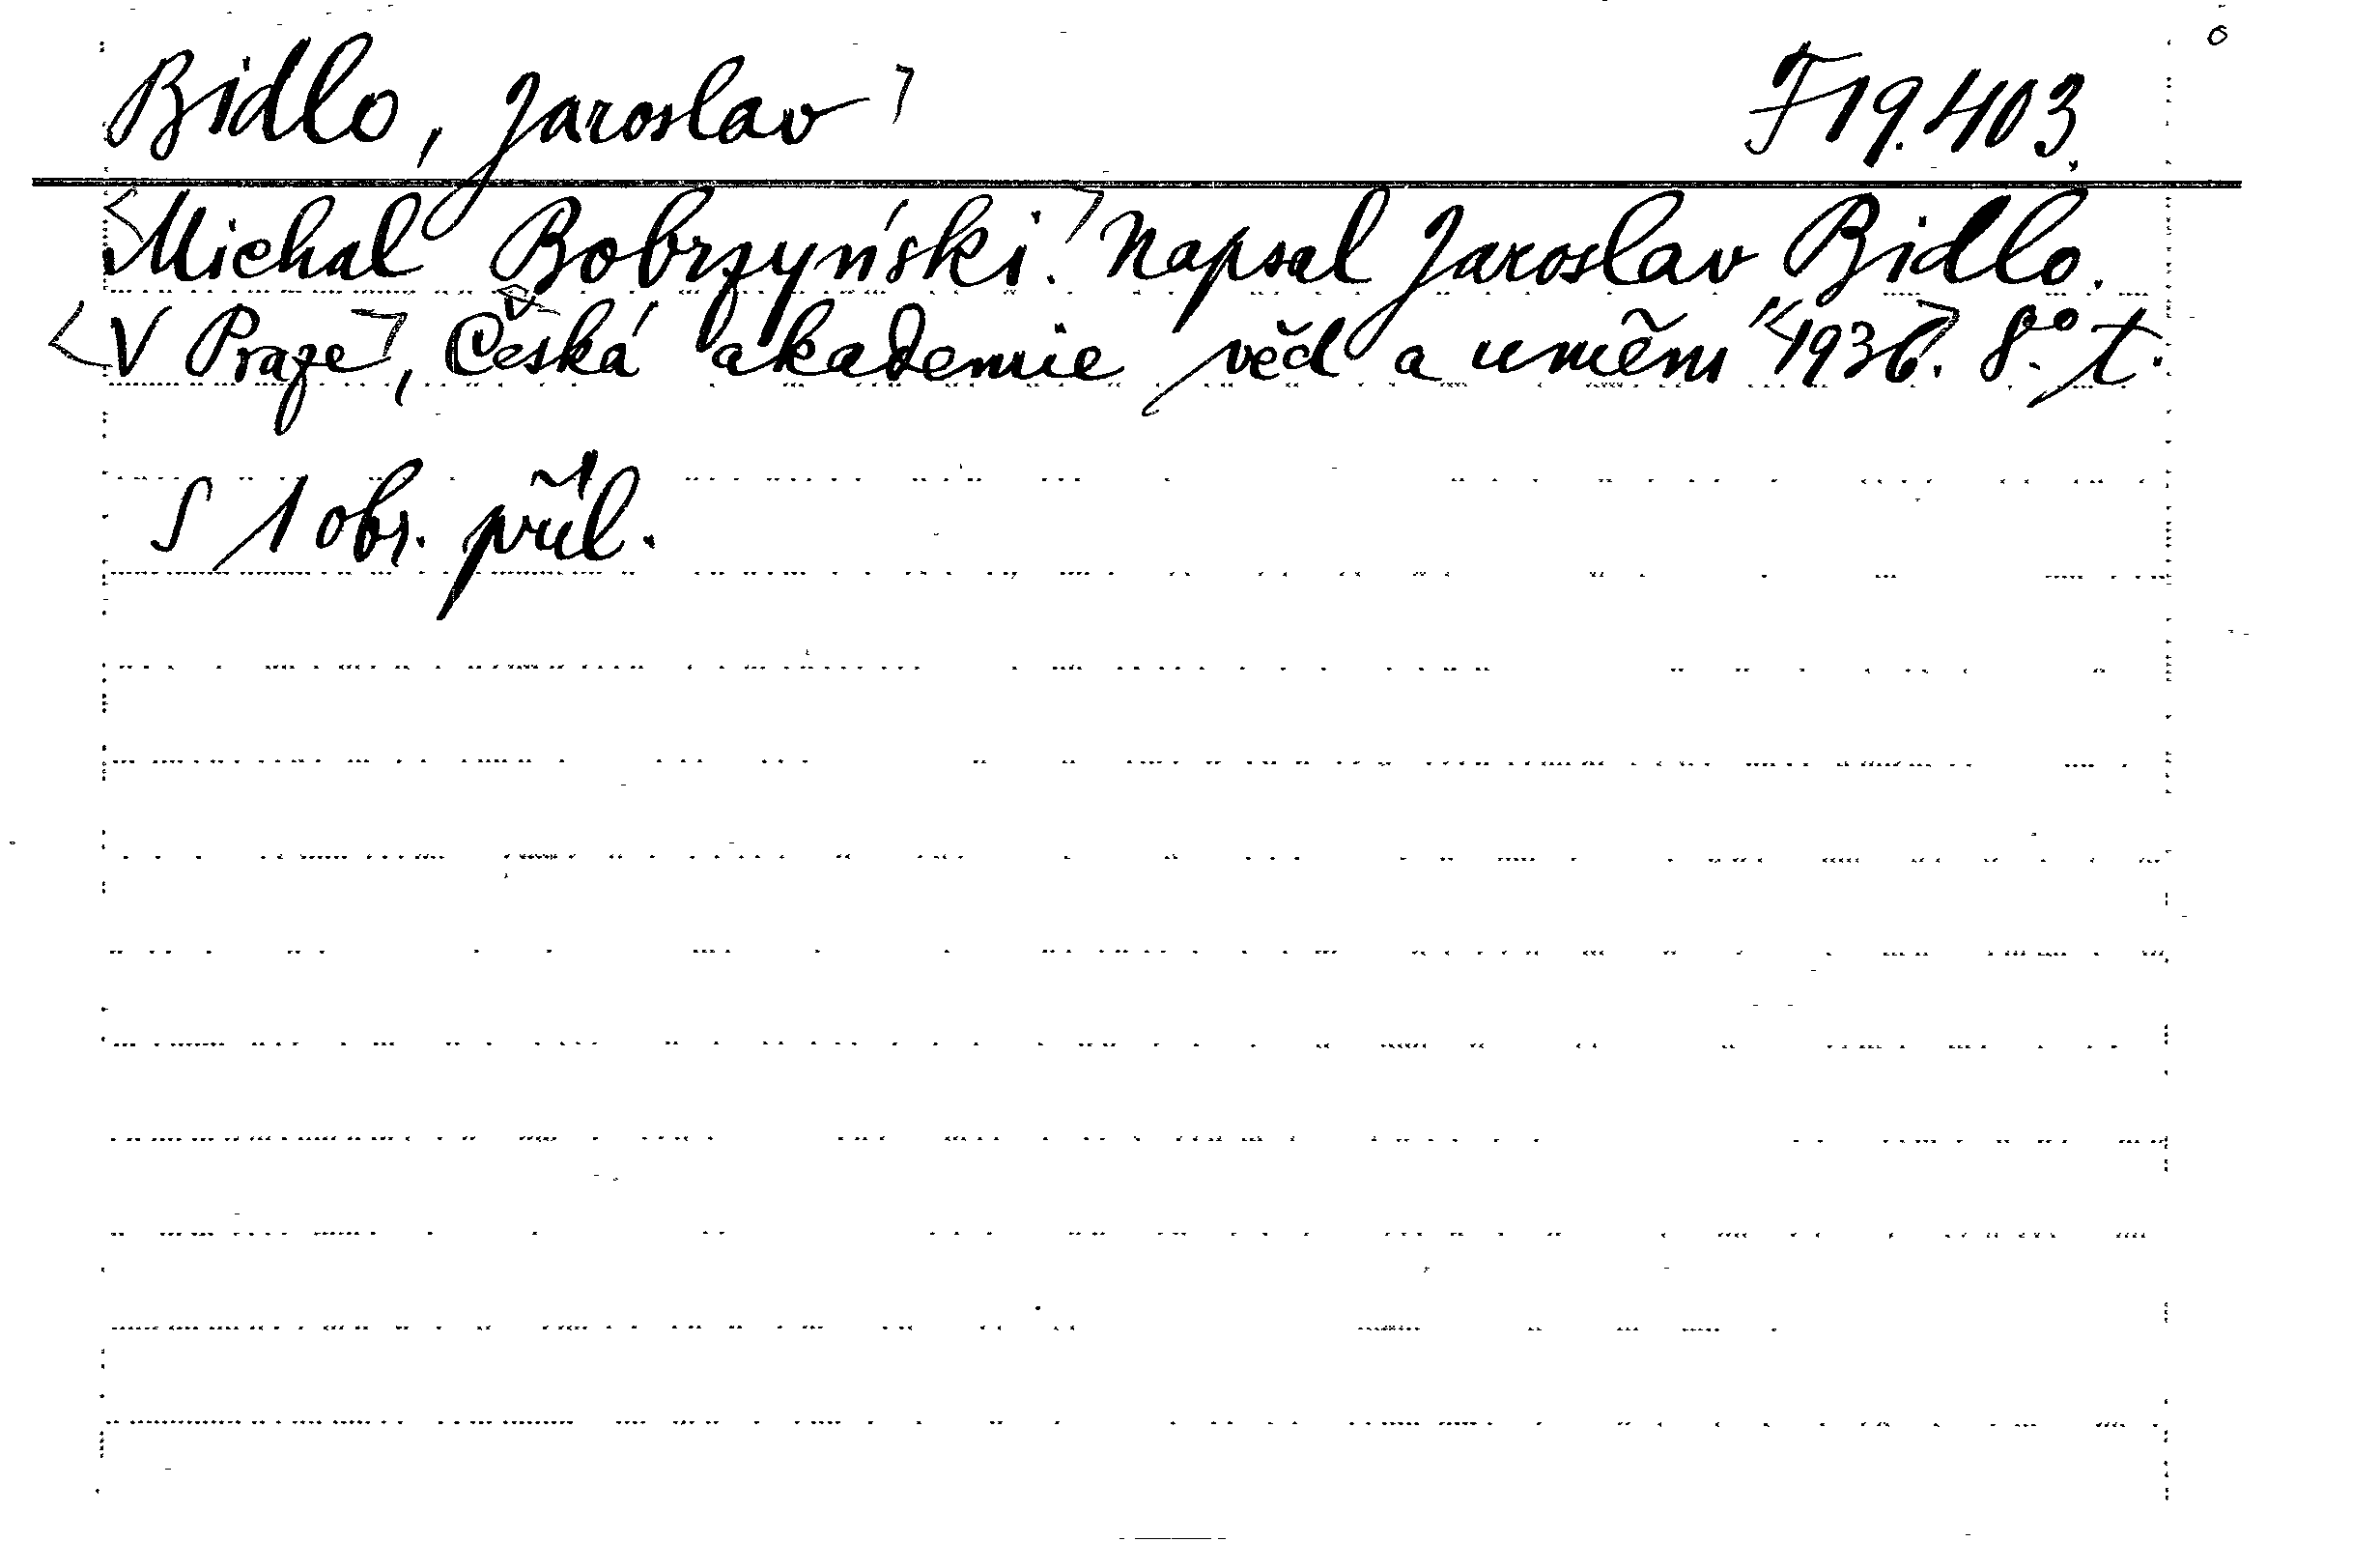 Bidlo, Jaroslav F 19.403.
Michal Bobrzyński. Napsal Jaroslav Bidlo.
V Praze, Česká akademie věd a umění 1936. 8° t.
S 1 obr. příl.